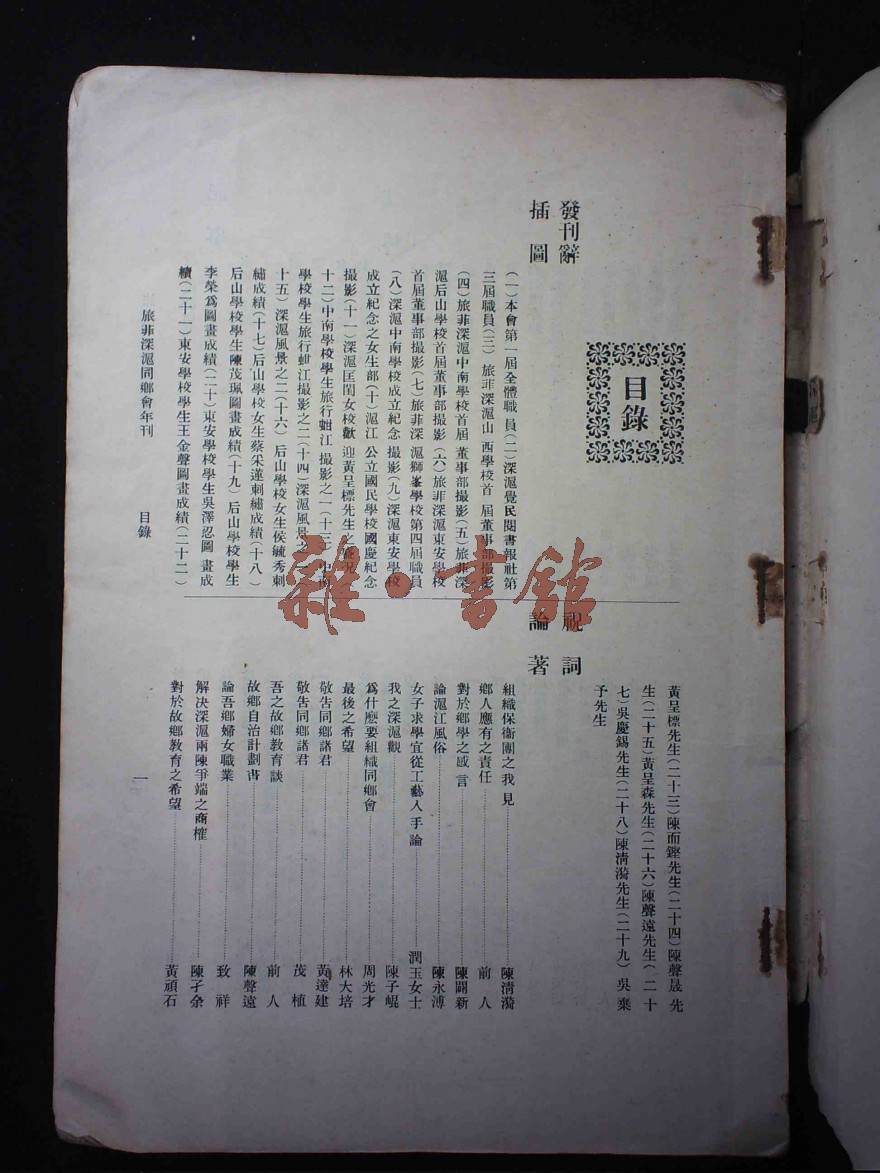 目錄
發刊辭
插圖
(一)本會第一屆全體職員(二)深滬覺民閱書報社第
三屆職員(三)旅菲深滬山西學校首屆董事部撮影
(四)旅菲深滬中南學校首屆董事部撮影(五)旅菲深
滬后山學校首屆董事部撮影(六)旅菲深滬東安學校
首屆董事部撮影(七)旅菲深滬獅峯學校第四屆職員
(八)深滬中南學校成立紀念撮影(九)深滬東安學校
成立紀念之女生部(十)滬江公立國民學校國慶紀念
撮影(十一)深滬匡閨女校歡迎黃呈標先生之盛況(
十二)中南學校學生旅行蚶江撮影之一(十三)中南
學校學生旅行蚶江撮影之二(十四)深滬風景之一(
十五)深滬風景之二(十六)后山學校女生侯毓秀刺
繡成績(十七)后山學校女生蔡采蓮刺繡成績(十八)
后山學校學生陳茂珮圖畫成績(十九)后山學校學生
李榮爲圖畫成績(二十)東安學校學生吳澤忍圖畫成
績(二十一)東安學校學生王金聲圖畫成績(二十二)
黃呈標先生(二十三)陳而鏗先生(二十四)陳聲晟先
生(二十五)黃呈森先生(二十六)陳聲遠先生(二十
七)吳慶錫先生(二十八)陳清漪先生(二十九)吳棄
予先生
祝詞
論著
組織保衛團之我見 陳清漪
鄉人應有之責任 前人
對於鄉學之感言 陳闢新
論滬江風俗 陳永溥
女子求學宜從工藝入手論 潤玉女士
我之深滬觀 陳子崐
爲什麽要組織同鄉會 周光才
最後之希望 林大培
敬告同鄉諸君 黃達建
敬告同鄉諸君 茂植
吾之故鄉教育談 前人
故鄉自治計劃書 陳聲遠
論吾鄉婦女職業 致祥
解决深滬兩陳爭端之商榷 陳孑余
對於故鄉教育之希望 黃頑石
旅菲深滬同鄉會年刊 目錄 一
雜·書館